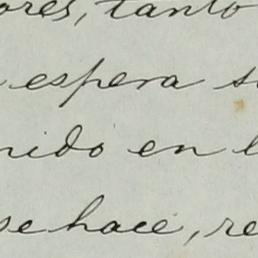 ores, tanto
espera s
nido en l
se hace, re